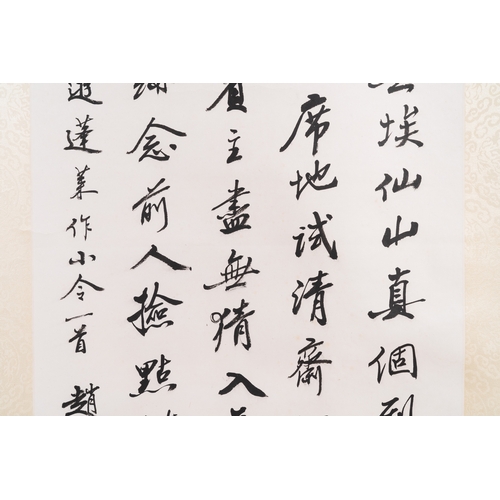 埃仙山真個到
席地試清齋
賓主盡無猜入
緬念前人撿點
遊蓬萊作小令一首 趙